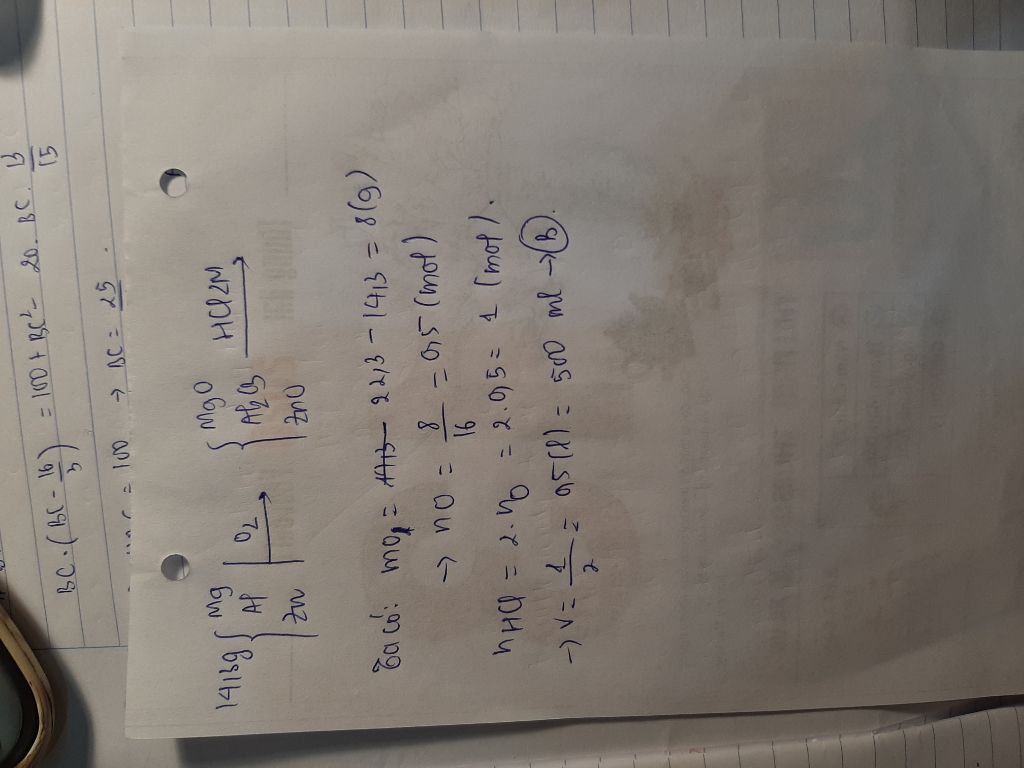 BC. (BC - 16/3) = 100 + BC² - 20. BC. 13/15
= 100 → BC = 25.
14,3g { Mg Al Zn | O₂ → { MgO Al₂O₃ ZnO HCl 2M →
Ta có: mO₂ = 22,3 - 14,3 = 8(g)
→ nO = 8/16 = 0,5 (mol)
nHCl = 2.nO = 2.0,5 = 1 (mol).
→ V = 1/2 = 0,5 (l) = 500 ml → B.